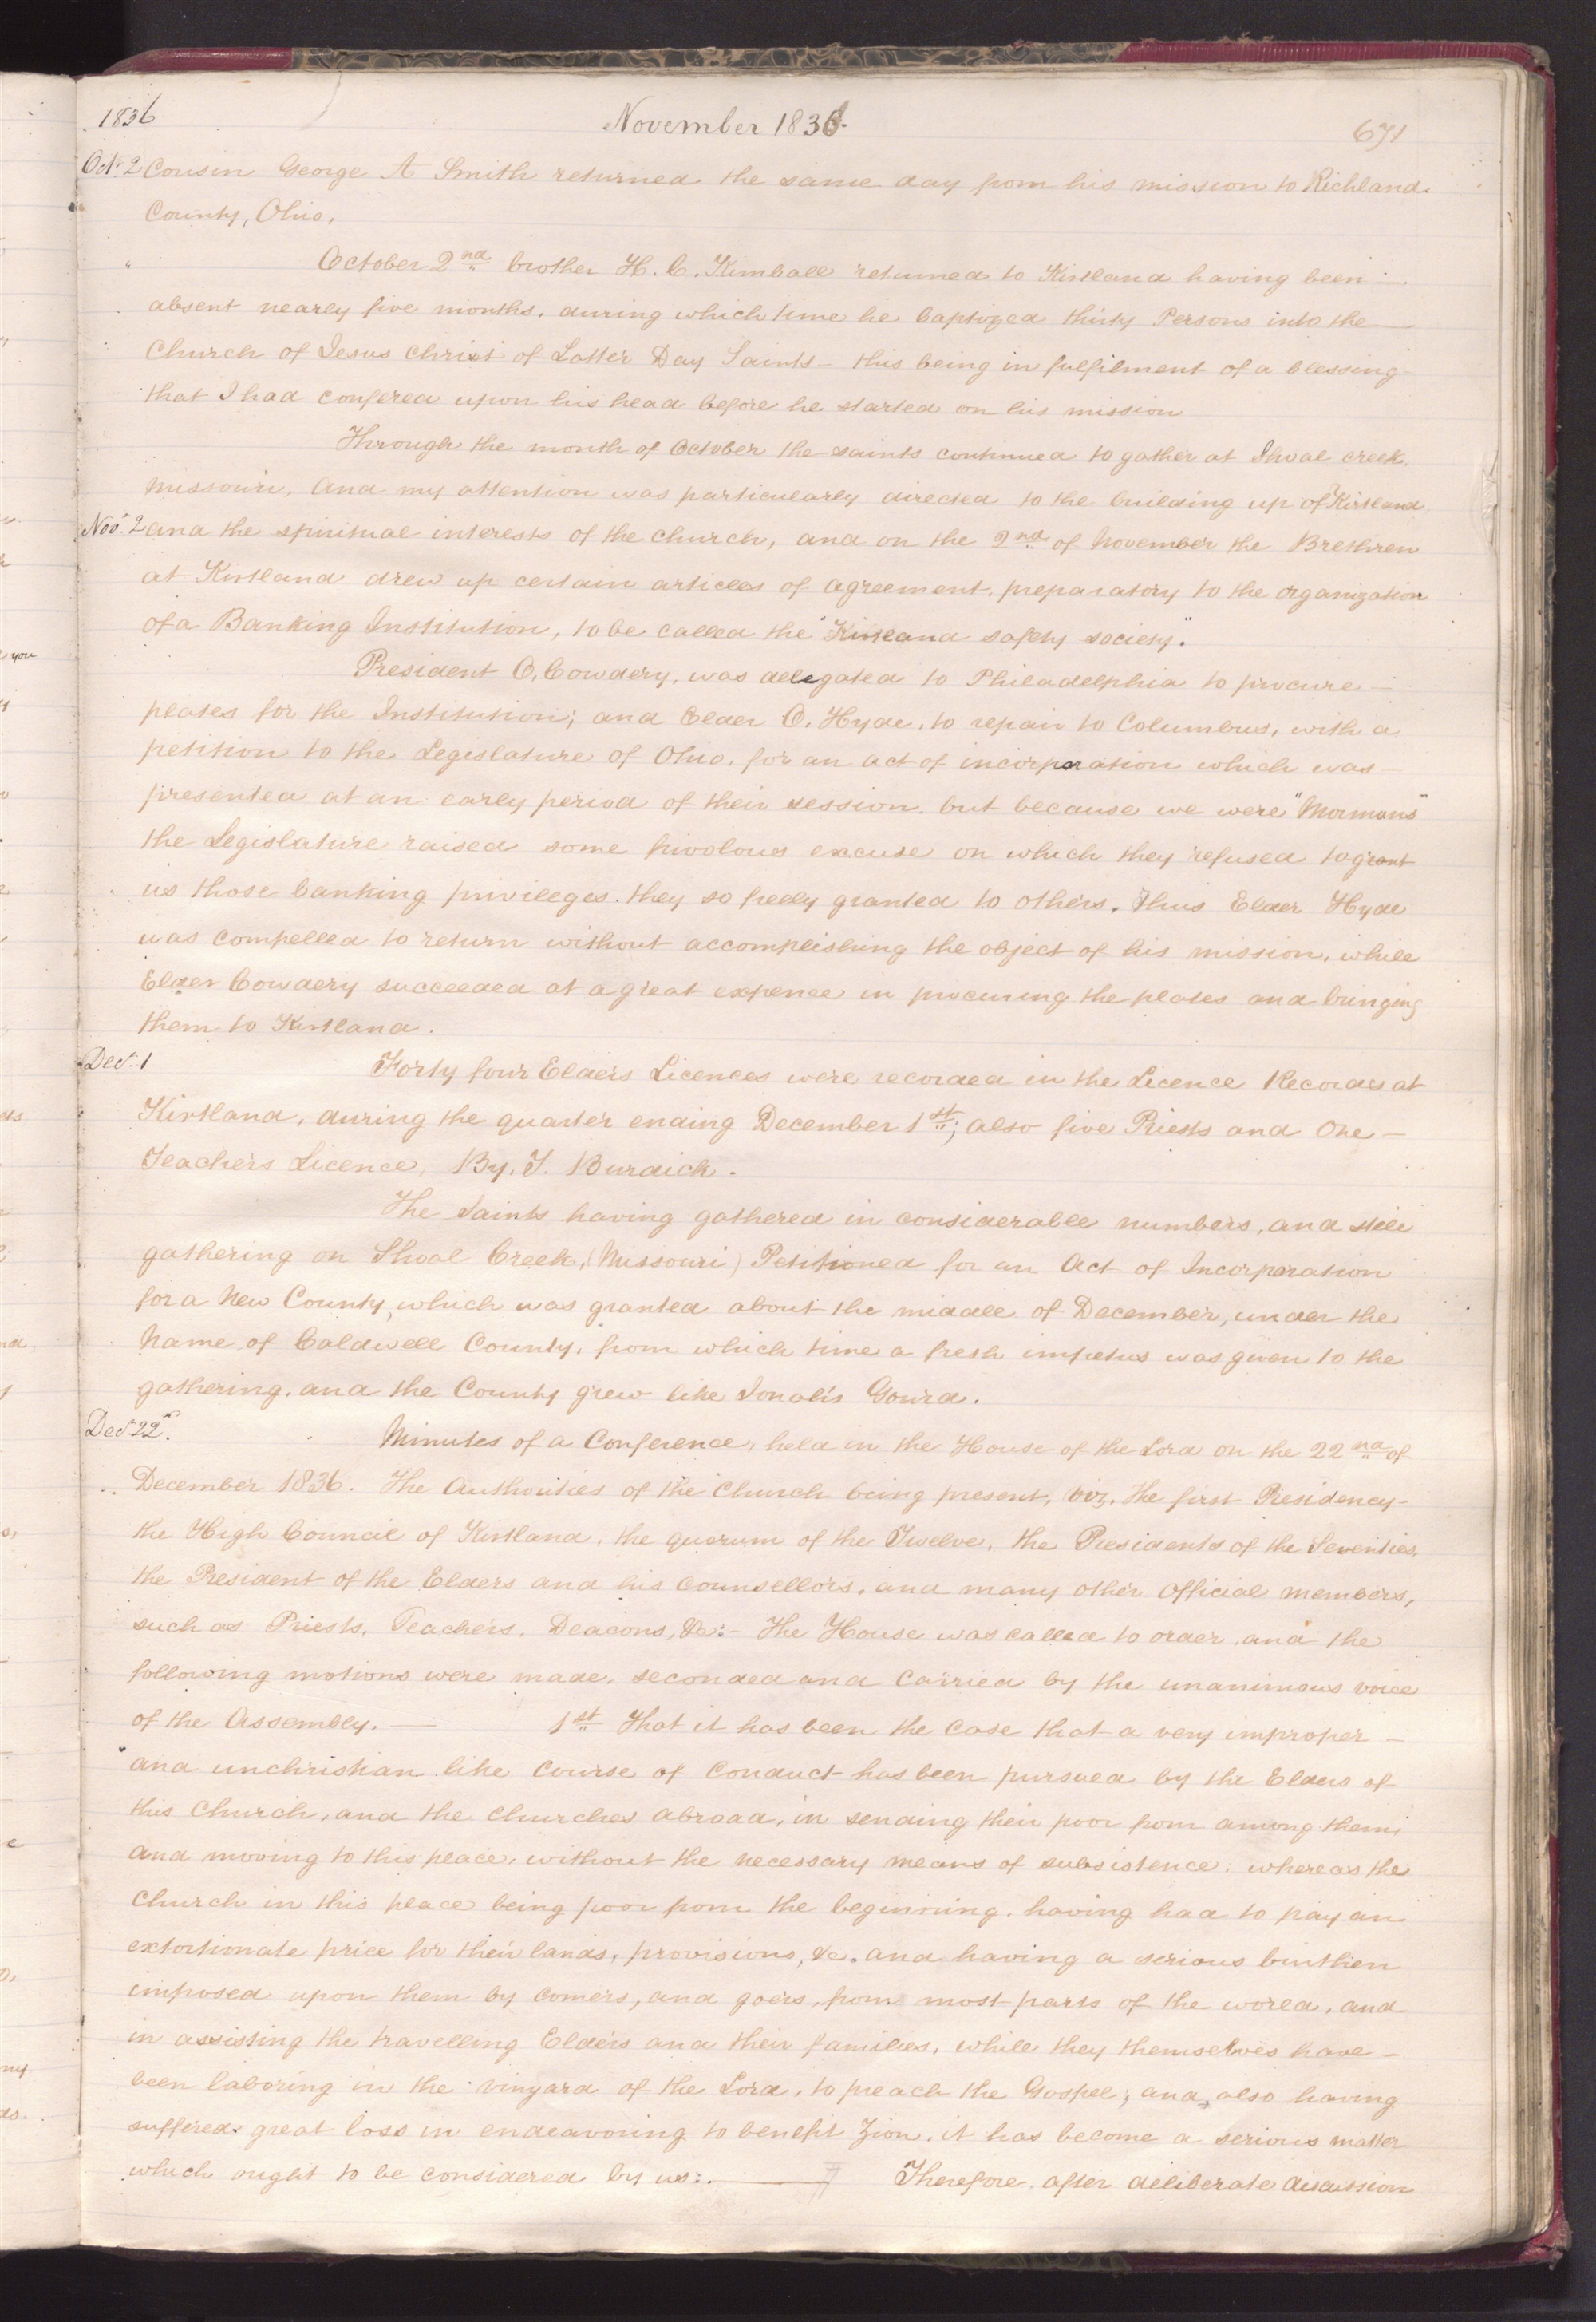 1836
November 1836.
671
Oct. 2 Cousin George A Smith returned the same day from his mission to Richland
County, Ohio,
" October 2nd brother H. C. Kimball returned to Kirtland having been
absent nearly five months, during which time he baptized thirty Persons into the
Church of Jesus Christ of Latter Day Saints – this being in fulfilment of a blessing
that I had confered upon his head before he started on his mission
Through the month of October the saints continued to gather at Shoal creek.
Missouri, and my attention was particularly directed to the building up of Kirtland
Nov. 2 and the spiritual interests of the church, and on the 2nd of November the Brethren
at Kirtland drew up certain articles of agreement, preparatory to the organization
of a Banking Institution, to be called the "Kirtland safety society".
President O. Cowdery, was delegated to Philadelphia to procure –
plates for the Institution; and Elder O. Hyde, to repair to Columbus, with a
petition to the Legislature of Ohio, for an act of incorporation which was –
presented at an early period of their session. but because we were "Mormons"
the Legislature raised some frivolous excuse on which they refused to grant
us those banking privileges. they so freely granted to others. Thus Elder Hyde
was compelled to return without accomplishing the object of his mission, while
Elder Cowdery succeeded at a great expence in procuring the plates and bringing
them to Kirtland.
Dec. 1 Forty four Elders Licences were recorded in the Licence Records at
Kirtland, during the quarter ending December 1st; also five Priests and One –
Teachers Licence, By. T. Burdick.
The Saints having gathered in considerable numbers, and still
gathering on Shoal Creek, (Missouri) Petitioned for an Act of Incorporation
for a New County, which was granted about the middle of December, under the
Name of Caldwell County, from which time a fresh impetus was given to the
gathering, and the County grew like Jonah's Gourd.
Dec. 22. Minutes of a Conference, held in the House of the Lord on the 22nd of
December 1836. The Authorities of the Church being present, viz, the first Presidency –
the High Council of Kirtland, the quorum of the Twelve, the Presidents of the Seventies,
the President of the Elders and his counsellors, and many other Official members,
such as Priests, Teachers, Deacons, &c:– The House was called to order, and the
following motions were made, seconded and Carried by the unanimous voice
of the Assembly. — 1st That it has been the case that a very improper –
and unchristian like course of conduct has been pursued by the Elders of
this Church, and the churches abroad, in sending their poor from among them,
and moving to this place, without the necessary means of subsistence. whereas the
Church in this place being poor from the beginning, having had to pay an
extortionate price for their lands, provisions, &c. and having a serious burthen
imposed upon them by comers, and goers, from most parts of the world, and
in assisting the travelling Elders and their families, while they themselves have –
been laboring in the vinyard of the Lord, to preach the Gospel; and, also having
suffered great loss in endeavoring to benefit Zion, it has become a serious matter
which ought to be considered by us:. — Therefore, after deliberate discussion